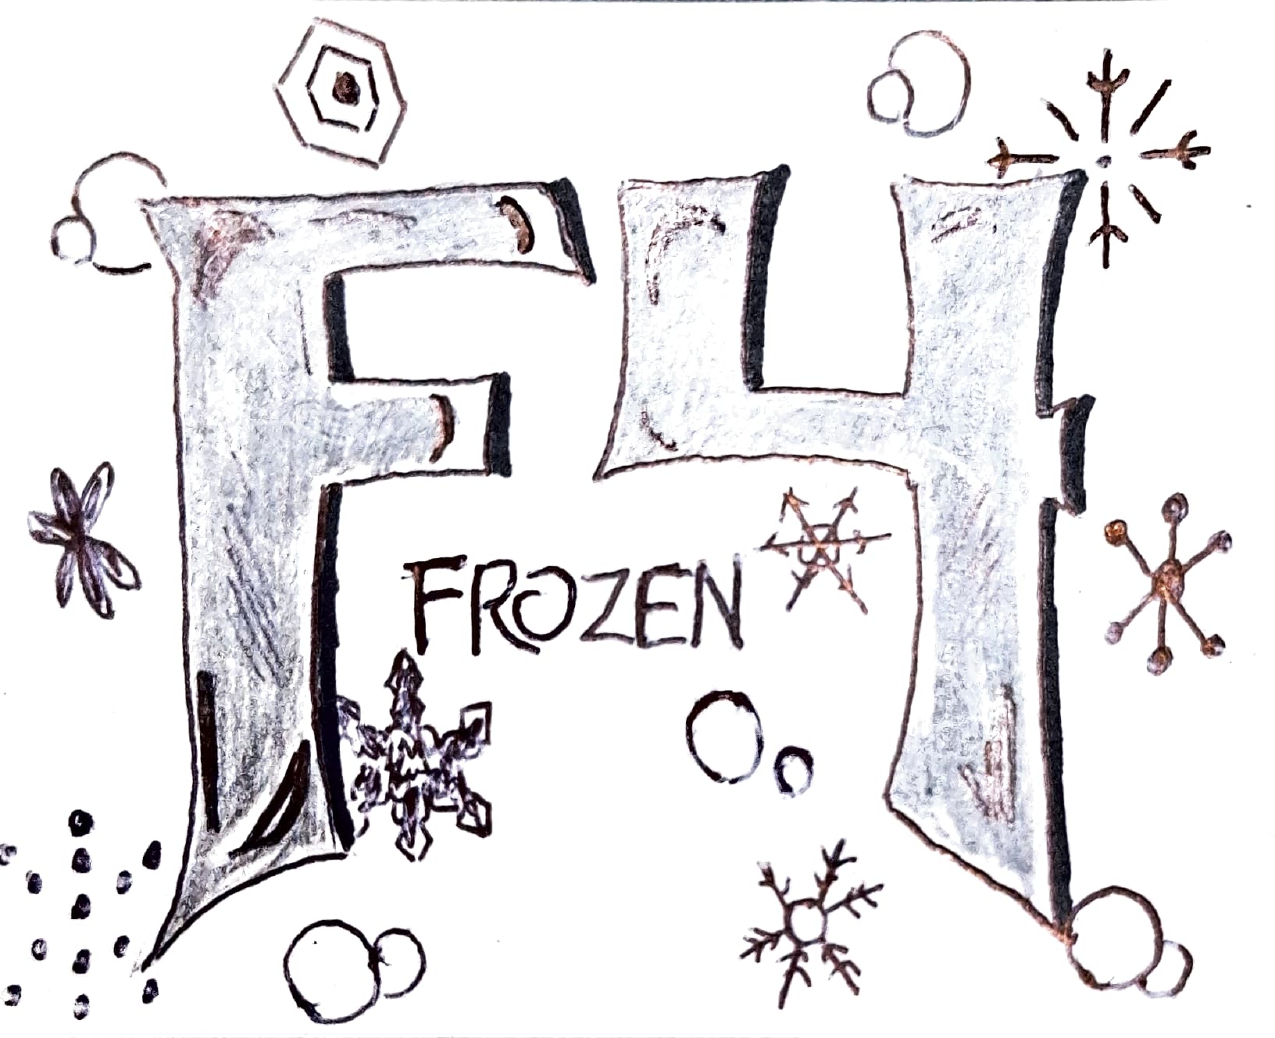 F4
FROZEN